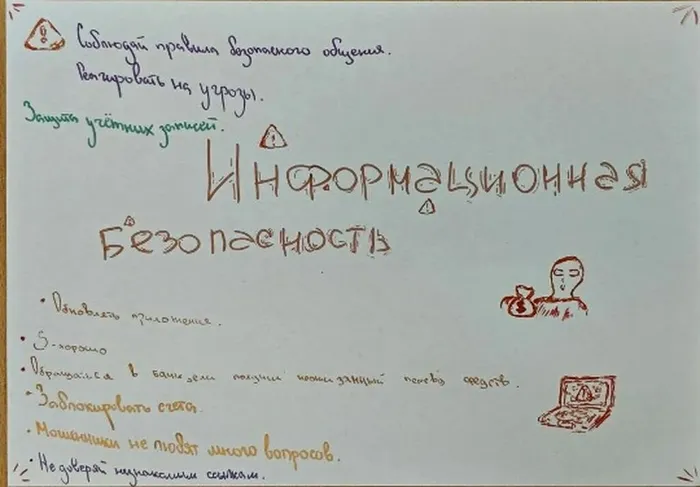 Соблюдай правила безопасного общения.
Реагировать на угрозы.
Защита учётных записей.
Информационная
Безопасность
• Обновлять приложения.
• S-хорошо
• Обращайся в банк если получил перевод средств.
• Заблокировать счета.
• Мошенники не любят много вопросов.
• Не доверяй незнакомым ссылкам.